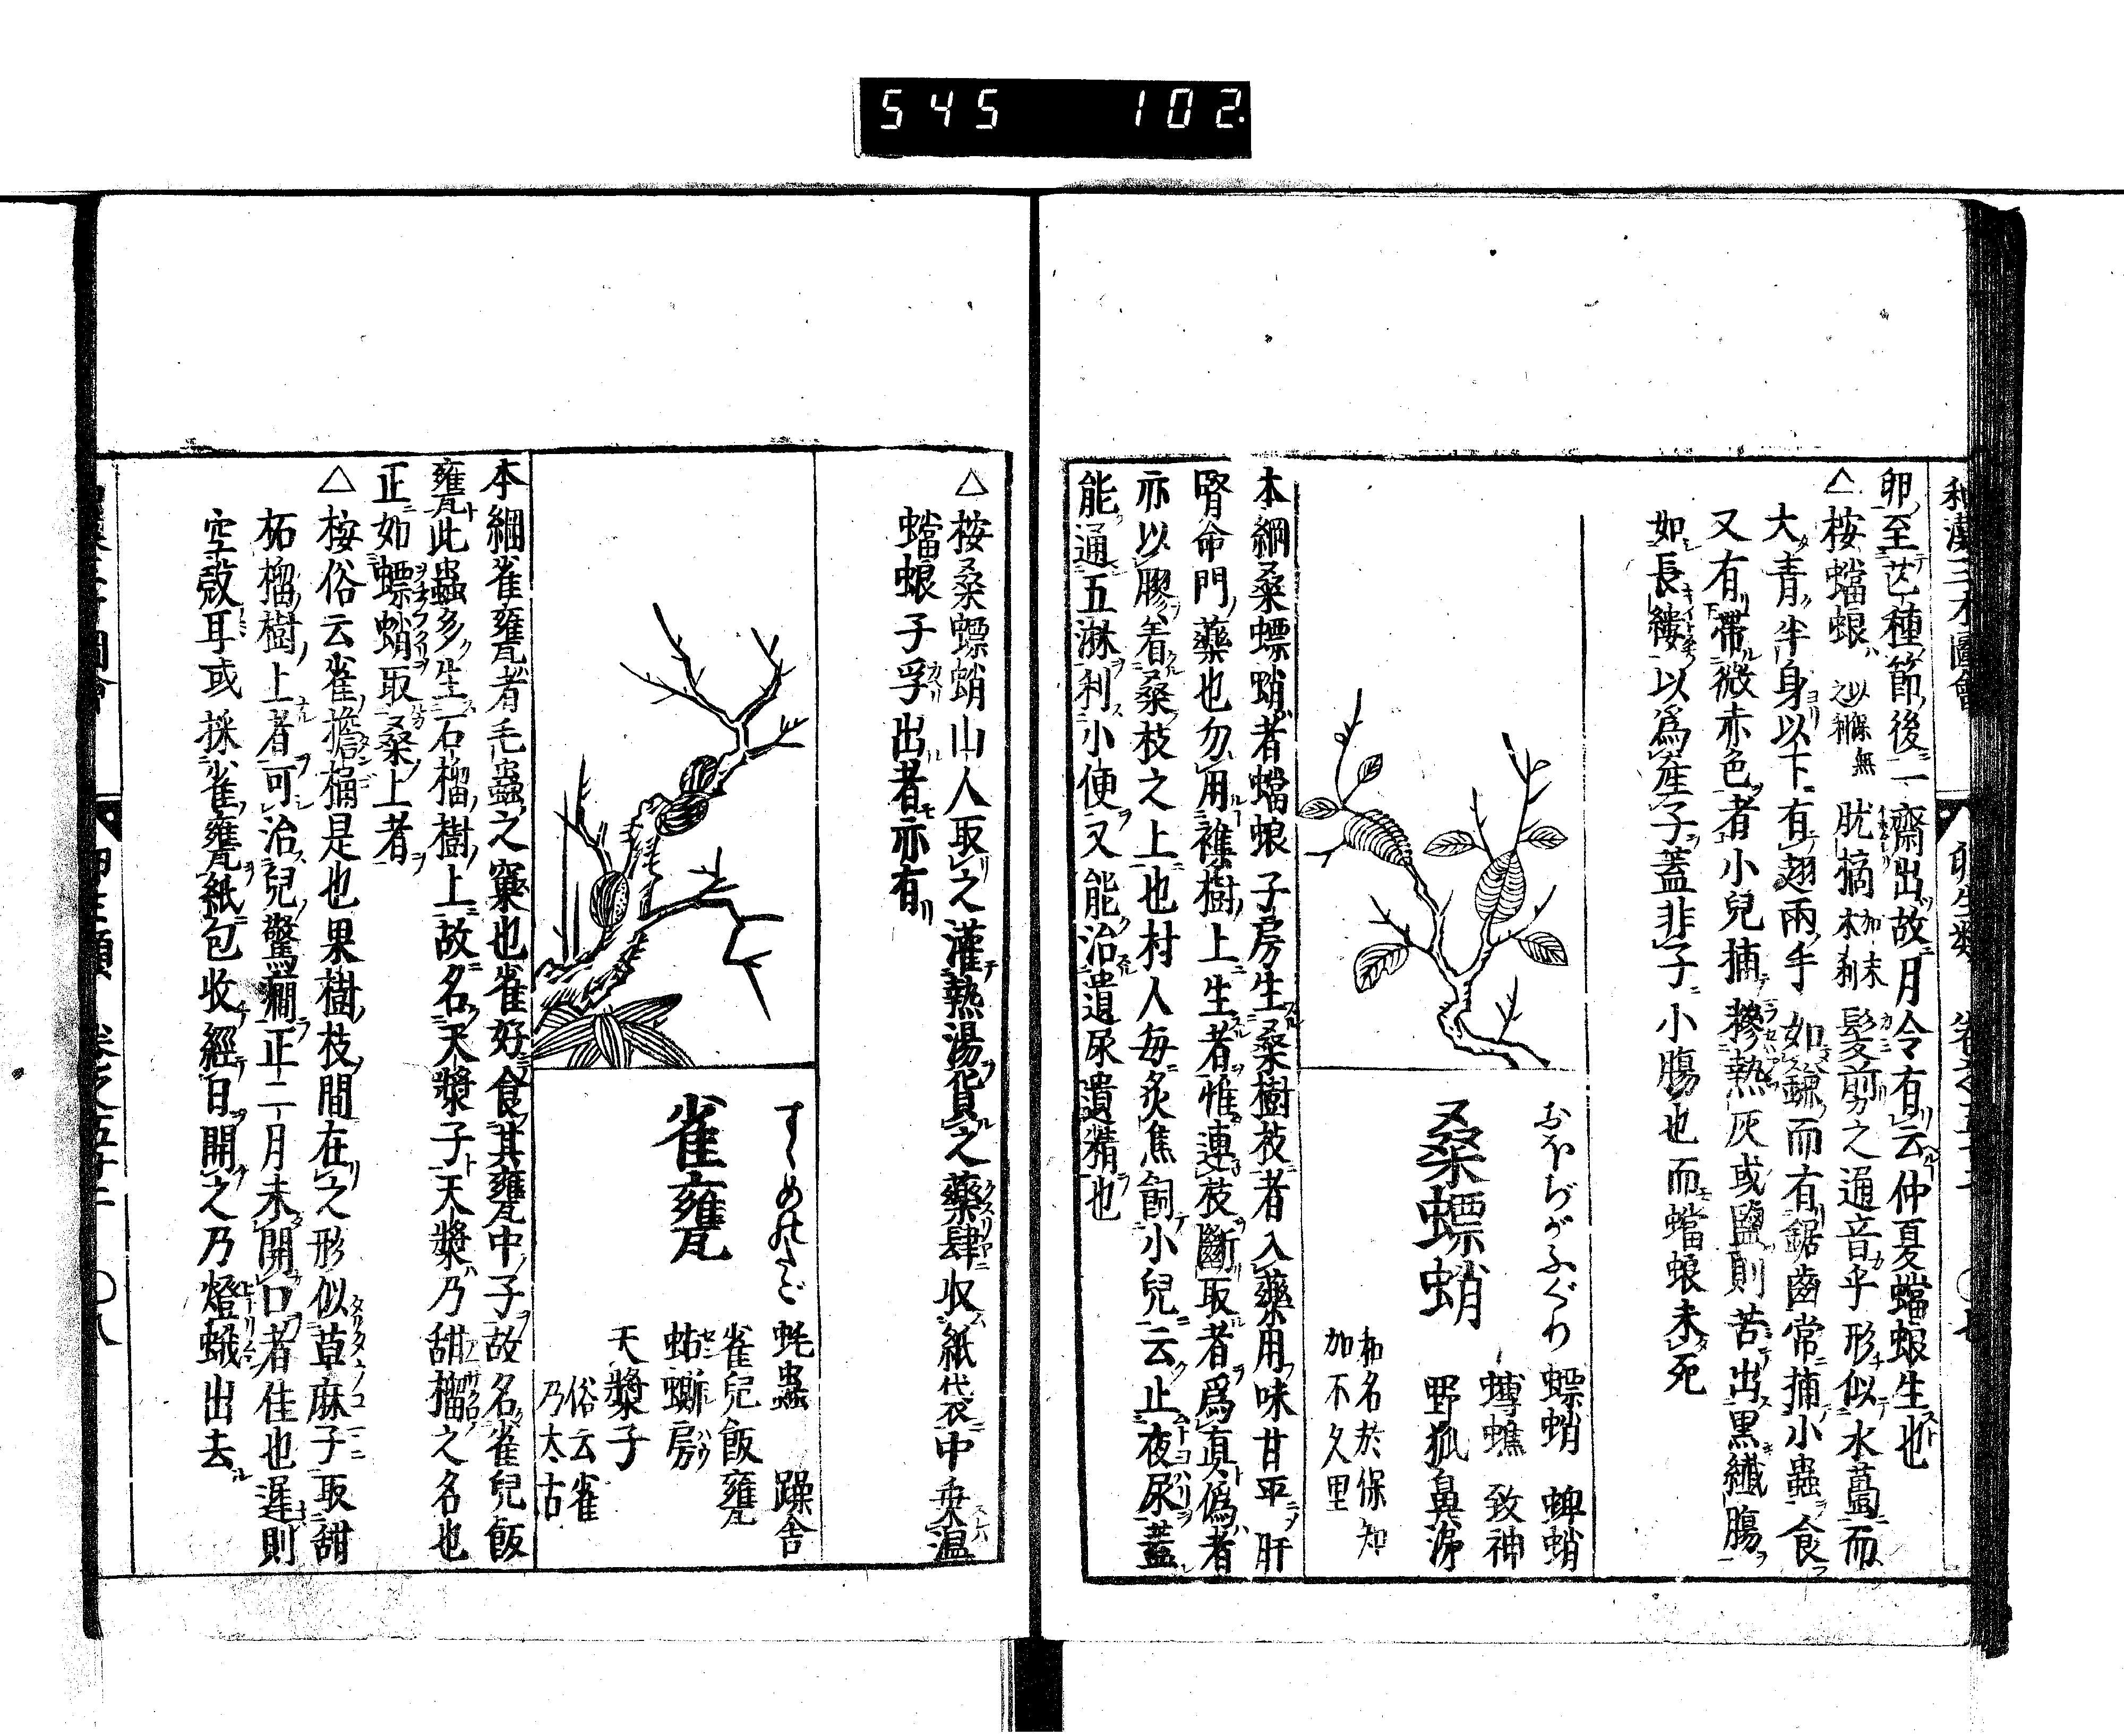 545 102.
和漢三才圖會 卵生類 卷之五十二 〇七
卵至芒種節後一齋出故月令有云仲夏螳蜋生也
△桉螳蜋 以保無之利 胧摘 加末木利 髮剪之通音乎形似水蠆而
大青半身以下有翅兩手如鎌而有鋸齒常捕小蟲食
又有帶微赤色者小兒捕糝熱灰或鹽則苦出黑纎膓
如長縷以爲産子蓋非子小膓也而螳蜋未死
おほぢがふぐり
桑螵蛸
螵蛸 蜱蛸
蟳蟭 致神
野狐鼻涕
和名於保知
加不久里
本綱桑螵蛸者螳蜋子房生桑樹枝者入藥用味甘平肝
腎命門藥也勿用襍樹上生者惟連枝斷取者爲真僞者
亦以膠着桑枝之上也村人每炙焦飼小兒云止夜尿蓋
能通五淋利小便又能治遺尿遺精也
△桉桑螵蛸山人取之灌熱湯貨之藥肆収紙袋中乗温
螳蜋子孚出者亦有
すゝめのたご
雀甕
蚝蟲 躁舎
雀兒飯甕
蛄蟖房
天漿子
俗云雀
乃太古
本綱雀甕者毛蟲之窠也雀好食其甕中子故名雀兒飯
甕此蟲多生石榴樹上故名天漿子天漿乃甜榴之名也
正如螵蛸取桑上者
△桉俗云雀擔桶是也果樹枝間在之形似草麻子取甜
柘榴樹上者可治兒驚癇正二月未開口者佳也遲則
空殼耳或採雀甕紙包收經日開之乃燈蛾出去
卷之五十二 〇八